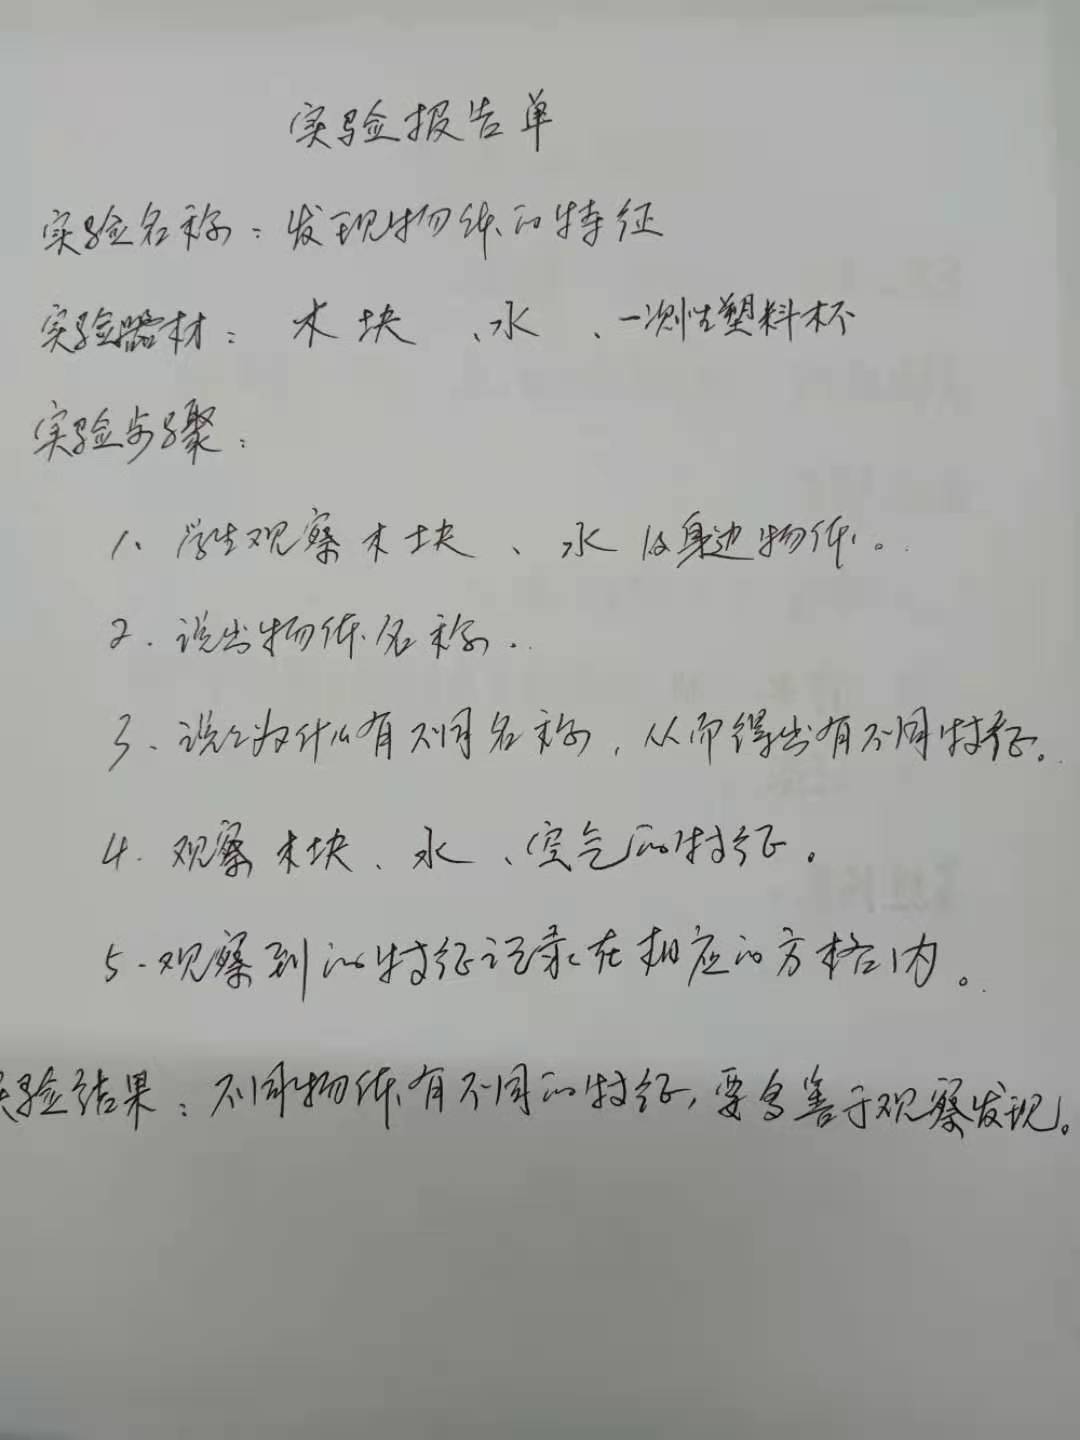 实验报告单
实验名称：发现物体的特征
实验器材：木块、水、一次性塑料杯
实验步骤：
1、学生观察木块、水及身边物体。
2.说出物体名称.
3、说说为什么有不同名称，从而得出有不同特征。
4.观察木块、水、空气的特征。
5.观察到的特征记录在相应的方格内。
实验结果：不同物体有不同的特征，要多善于观察发现。